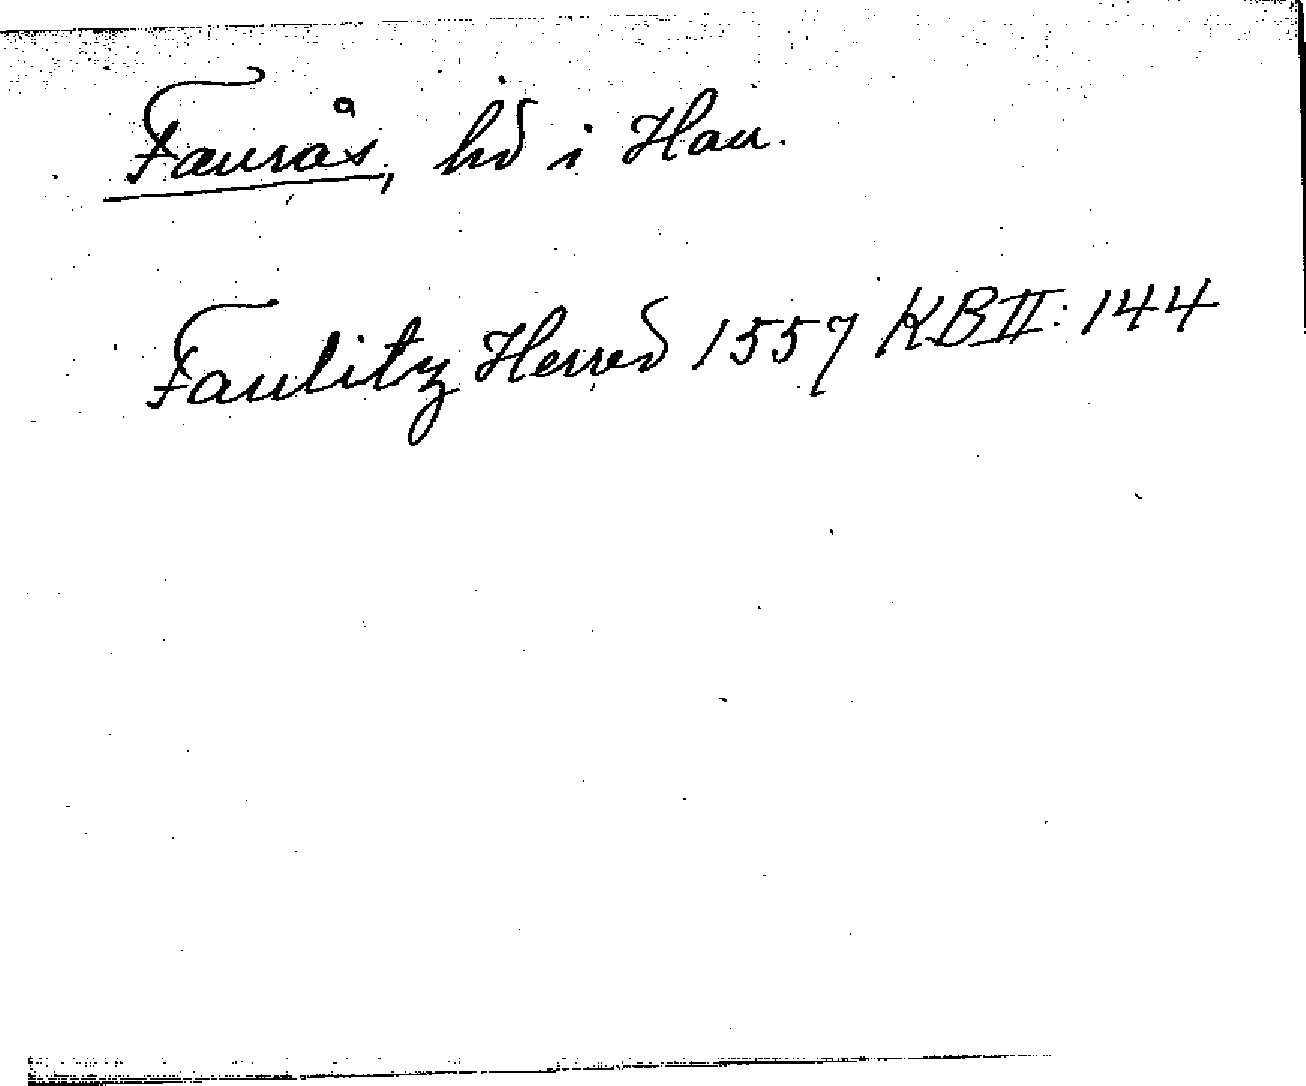 Faurås, hd i Hall.
Faulitz Herred 1557 KBII: 144